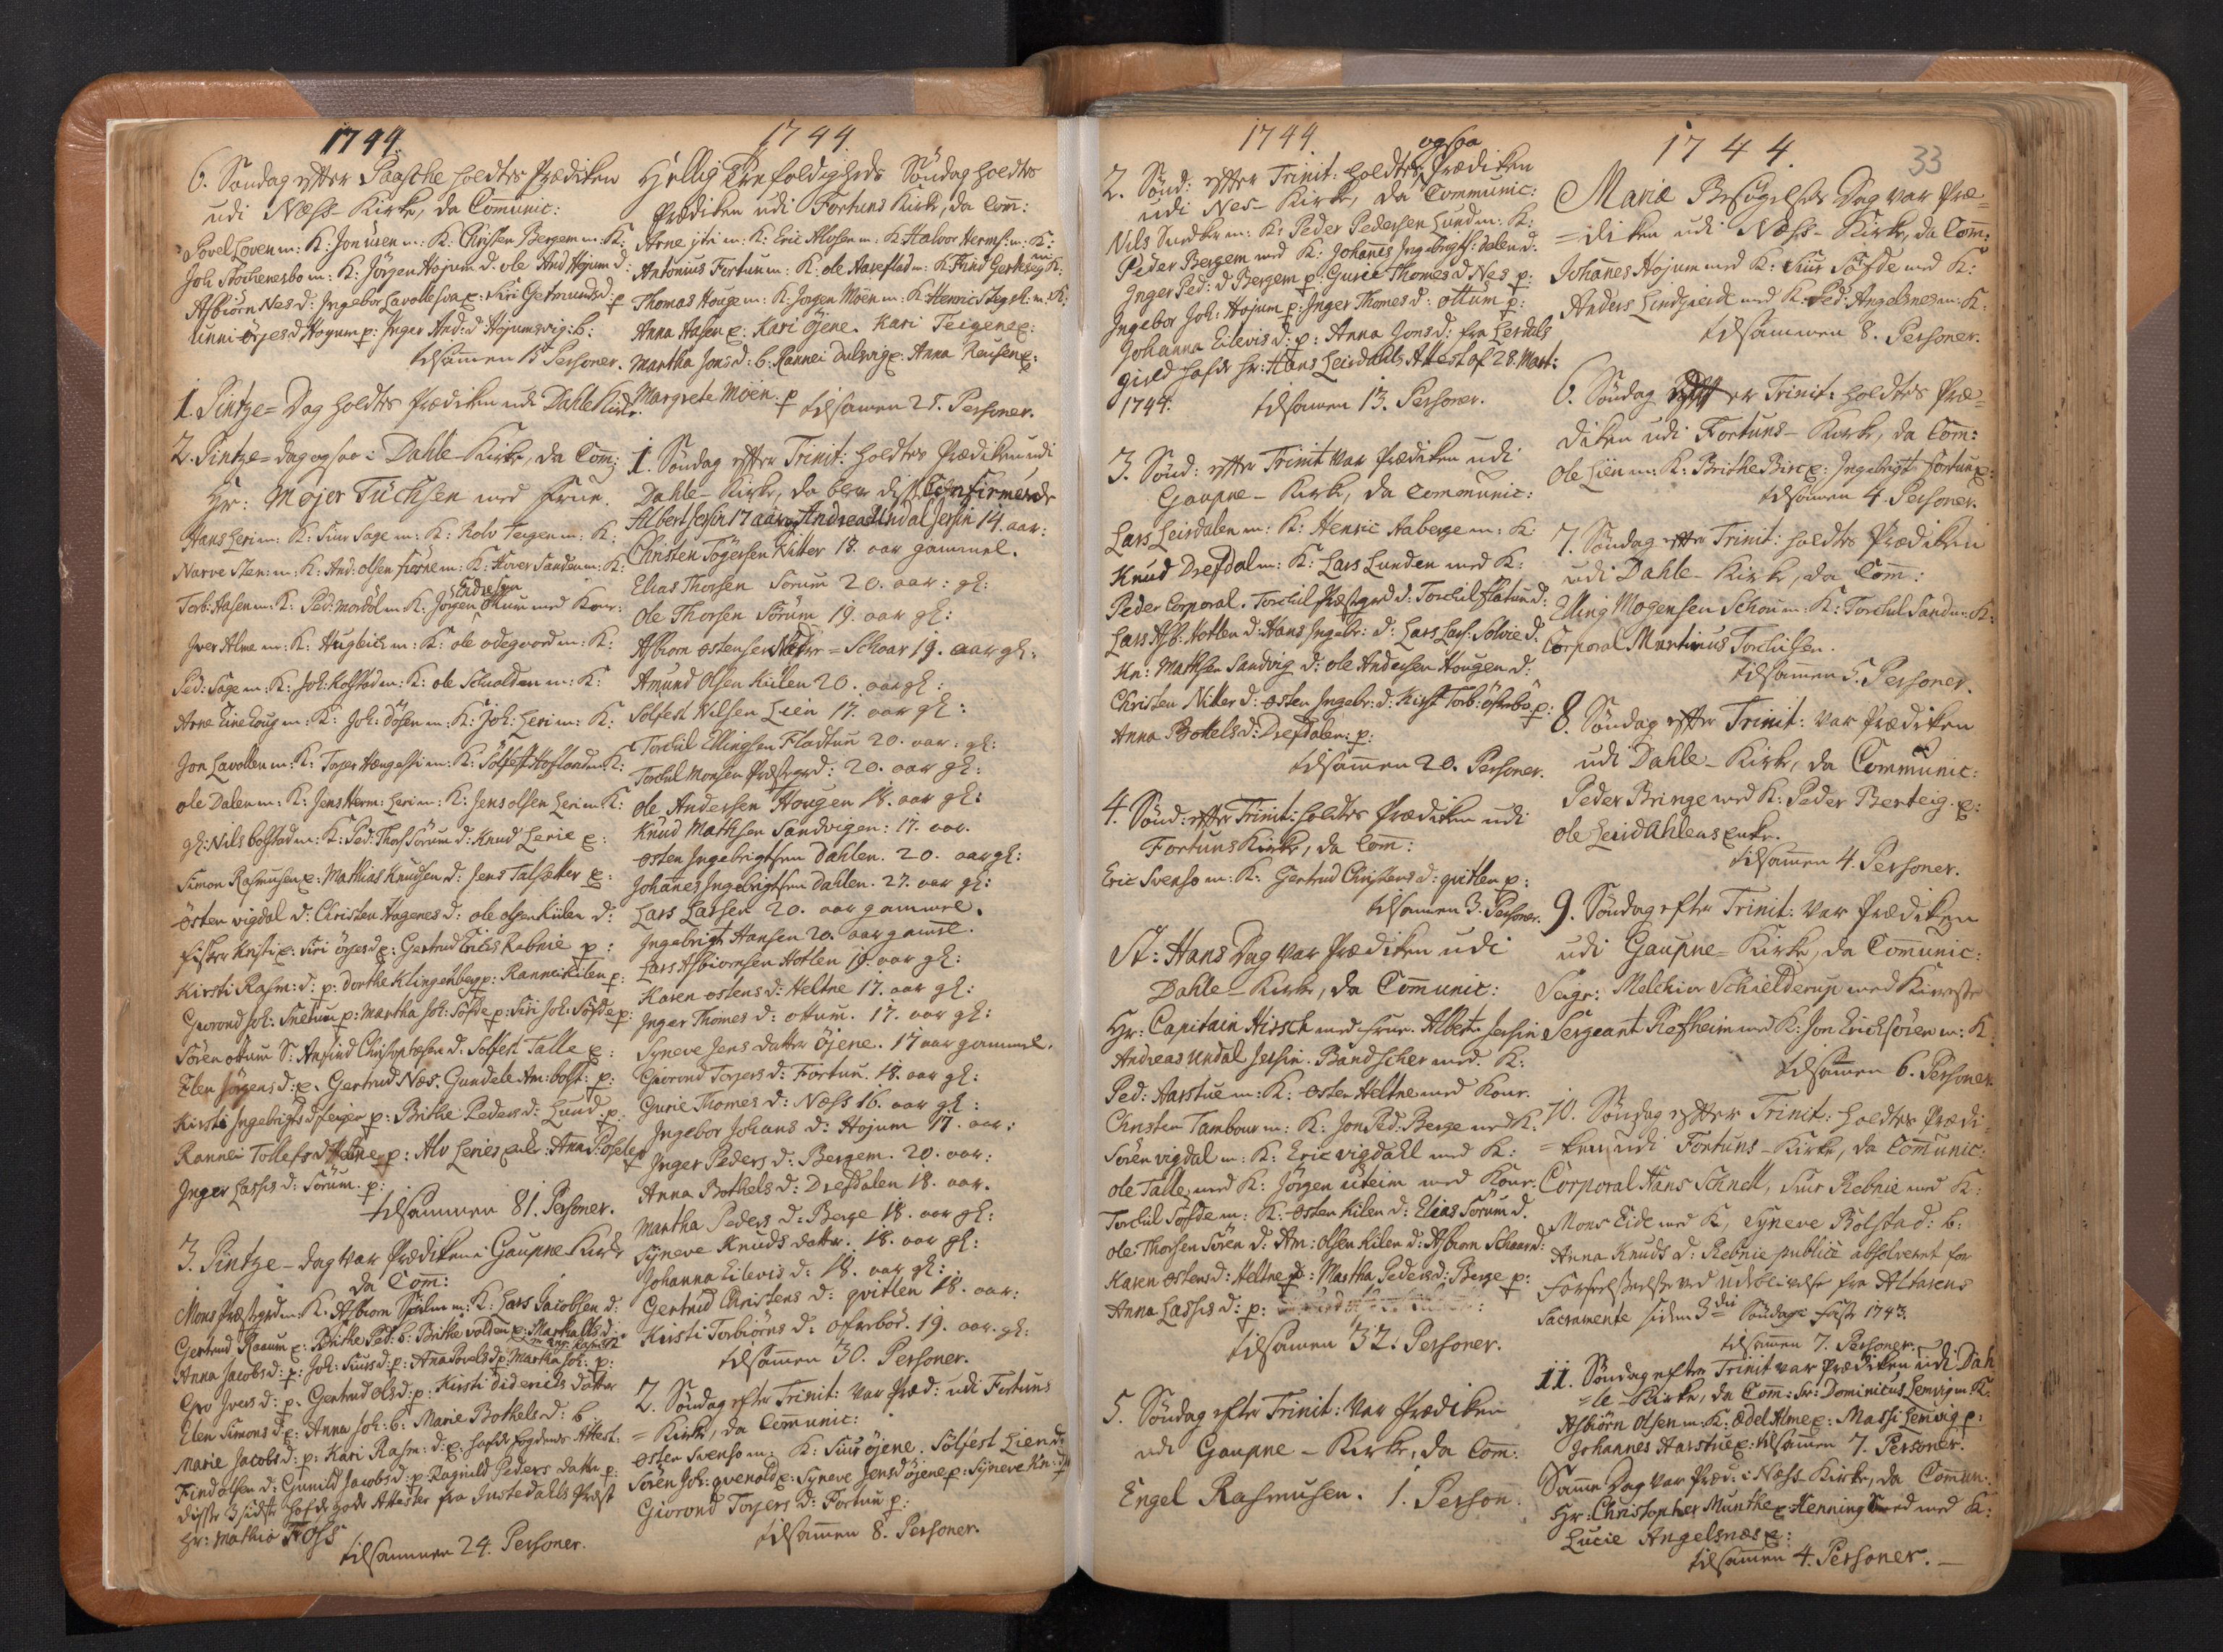 1744.
6. Søndag efter Paaske holdtes Prædiken
udi Næss-Kirke, da Comunic:
Povel Loven m: K: Jon uren m: K: Christen Bergem m: K:
Joh: m: K: Jørgen Højum d. ole And Højum d:
Asbiørn Nes d: Ingebor p: Siri d: p
unni d Højum p: Inger And: d Højumsvig: b:
tilsamen 15 Personer.
1. Pintze=Dag holdtes Prædiken udi Dahle Kirke.
2. Pintze=dag ogsaa i Dahle-Kirke, da Com:
Hr: Major Tuchsen med Frue.
Hans Leri m: K: Siur Sage m: K: Rolv Teigen m: K:
Narve Sten: m: K: And: olsen m: K: Iver Sanden m: K:
Eidresym
Torb: Hasen m: K: Ped: Mordøl m: K: Jørgen ottum med Kone:
Iver Alme m: K: m: K: ole odegaard m: K:
Ped: Sage m: K: Joh: Kolstad m: K: ole Scholden m: K:
Arne m: K: Joh: Døsen m: K: Joh: Leri m: K:
Jon Lavollen m: K: m: K: Solfest Høyland m: K:
ole Dalen m: K: Jens Herm: Leri m: K: Jens olsen Leri m: K:
gl: Nils bolstad m: K: Ped: Thors Sørum d: Knud Lerie p:
Simon Rasmusen p: Mathias Knudsen d: Jens Talsætter p:
østen vigdal d: Christen Hagenes d: ole olsen Kiilen d:
Kirsti p: Siri d p: Gertrud Rebnie p:
Kirsti Rasm: d: p: Dorthe Klingenberg p: Rannei Kilen p:
Guorond Joh: Snetun p: Martha Joh: Søfde p: Siri Joh: Søfde p:
Søren ottum S: Christophersen d. Solfest Talle p:
Elen Jørgens d: p. Gertrud Næs. Gundele Am: bolst: p:
Kirsti Ingebrigts d p: Brithe Peders d: Lund p:
Rannei Tollefs d p: Alv Leries Enke: Anna
Inger Lasses d: Sørum. p:
tilsammen 81. Personer.
3. Pintze-dag var Prædiken i Gaupne Kirke
da Com:
Mons m: K: Asbiørn m: K: Lars Jacobsen d:
Gertrud Raaum p: Brithe Ped: b: Brithe volden p: Martha
Anna Jacobs d: p: Joh: Siurs d: p: Ana Povels d p: Martha Joh: p:
Gro Ivers d: p. Gertrud ols d: p: Kirsti Didericks datter
Elen Simons d p: Anna Joh: b: Marie Bothels d: b
Marie Jacobs d: p: Kari Rasm: d: p: Attest.
Find olsen d: Gunild Jacobs d: p. Ragnild Peders datter p:
disse 3 sidste hafde gode Attester fra Justedahls Præst
Hr: Mathia Foss
tilsammen 24. Personer.
1744.
Hellig Trefoldigheds Søndag holdtes
Prædiken udi Fortuns Kirke, da Com:
Arne ytri m: K: Eric Alvsen m: K Halvor Herms: m: K:
Antonius Fortun m: K: ole Aasestad m: K: K:
Thomas Houge m: K: Jørgen Møen m: K: Henric m: K:
Anna Hasen p: Kari øjene. Kari Teigen p:
Martha Jons d: b: Rannei Dulsvig p: Anna p:
Margrete Møen. p tilsamen 25. Personer.
1. Søndag efter Trinit: holdtes Prædiken udi
Dahle-Kirke, da blev disse Confirmerede
Albert Jersin 17 aar, Andreas Undal Jersin 14. aar:
Christen Tøgersen Nitter 18. aar gammel.
Elias Thorsen Sørum 20. aar: gl:
Ole Thorsen Sørum 19. aar gl:
Asbiorn ostensen = Schaar 19. aar gl:
Amund Olsen Kiilen 20. aar gl:
Solfest Nilsen Lien 17. aar gl:
Torchil Ellingsen Fladtun 20. aar: gl:
Torchil Monsen Præstegrd: 20. aar gl:
ole Andersen Hougen 18. aar gl:
Knud Mathsen Sandvigen: 17. aar.
osten Ingebrigtsen Dahlen. 20. aar gl:
Johanes Ingebrigtsen Dahlen. 27. aar gl:
Lars Larsen 20. aar gammel.
Ingebrigt Hansen 20. aar gamel.
Lars Asbiornsen Hotlen 18. aar gl:
Karen ostens d: Heltne 17. aar gl:
Inger Thomes d: ottum. 17. aar gl:
Syneve Jens datter øjene. 17 aar gammel.
Guorond Torjers d: Fortun. 18. aar gl:
Gurie Thomes d: Næss 16. aar gl:
Ingebor Johans d: Højum 17. aar:
Inger Peders d: Bergem. 20. aar:
Anna Bothels d: Drefdalen 18. aar.
Martha Peders d: Berge 18. aar gl:
Syneve Knuds datter. 18. aar gl:
Johanna Eilevis d: 18. aar gl:
Gertrud Christens d: qvitlen 18. aar:
Kirsti Torbiørns d: ofrebøe. 19. aar. gl:
tilsammen 30. Personer.
2. Søndag efter Trinit: var Præd: udi Fortuns
= Kirke, da Communic:
osten Svensø m: K: Siur øjene. Solfest Lien d:
Søren Joh: qvenold p: Syneve Jens d øjene p: Syneve Kn: d p
Guorond Torjers d: Fortun p:
tilsammen 8. Personer.
1744.
ogsaa
2. Sønd: efter Trinit: holdtes Prædiken
udi Nes-Kirke, da Communic:
Nils m: K: Peder Pedersen Lund m: K:
Peder Bergem med K: Johanes Ingebrigts: Dalen d.
Inger Ped: d Bergem p. Gurie Thomes d Nes p:
Ingebor Joh: Højum p: Inger Thomes d: ottum p:
Johanna Eilevis d: p: Anna Jons d: fra Lerdals
gield hafde Hr: Hans Leirdahls Attest af 28. Mart:
1744. tilsamen 13. Personer.
3. Sønd: efter Trinit var Prædiken udi
Gaupne-Kirke, da Communic:
Lars Leirdalen m: K: Henric Aaberge m: K:
Knud Drefdal m: K: Lars Lunden med K:
Peder Corporal. Torchil Præstgrd d: Torchil flatun d:
Lars Asb: Hotlen d: Hans Ingebr: d: Lars Lars: Solvie d:
Kn: Mathsen Sandvig d: ole Andersen Hougen d:
Christen Nitter d: østen Ingebr: d: Kirst Torb: öfrebø p:
Anna Bothels d: Drefdalen: p:
tilsammen 20. Personer.
4. Sønd: efter Trinit: holdtes Prædiken udi
Fortuns Kirke, da Com:
Eric Svensø m: K: Gertrud Christens d: qvitlen p:
tilsamen 3. Personer.
St: Hans Dag var Prædiken udi
Dahle-Kirke, da Communic:
Hr: Capitain Hirsch med Frue. Albert Jersin
Andreas Undal Jersin. Bandscher med K:
Ped: Aarstue m: K: østen Heltne med Kone.
Christen Tambour m: K: Jon Ped: Berge med K:
Søren vigdal m: K: Eric vigdahl med K:
ole Talle med K: Jørgen uteim med Kone.
Torchil Søfde m: K: østen Kilen d: Elias Sørum d.
ole Thorsen Søren d: Am: olsen Kilen d: Asbiorn Schaar d:
Karen østens d: Heltne p: Martha Peders d: Berge p:
Anna Lasses d: p:
tilsamen 32. Personer.
5. Søndag efter Trinit: var Prædiken
udi Gaupne-Kirke, da Com:
Engel Rasmusen. 1. Person.
1744.
33
Mariæ Besøgelses Dag var Præ=
=diken udi Næss-Kirke, da Com:
Johanes Højum med K: Siur Søfde med K:
Anders Lindgierde med K: Ped: Angelsnes m: K:
tilsammen 8. Personer.
6. Søndag efter Trinit: holdtes Præ=
diken udi Fortuns-Kirke, da Com:
Ole Lien m: K: Brithe p: Ingebrigt Fortun p:
tilsamen 4. Personer.
7. Søndag efter Trinit: holdtes Prædiken
udi Dahle-Kirke, da Com:
Elling Mogensen Schou m: K: Torchil Sand m: K:
Corporal Martinus Torchilsen.
tilsammen 5. Personer.
8. Søndag efter Trinit: var Prædiken
udi Dahle-Kirke, da Communic:
Peder Bringe med K: Peder Berteig p:
ole Leirdahlens Enke.
tilsammen 4. Personer.
9. Søndag efter Trinit: var Prædiken
udi Gaupne=Kirke, da Comunic:
Seigr: Melchior Schielderup med Kiereste
Sergeant Refheim med K: Jon Ericksøren m: K
tilsammen 6. Personer.
10. Søndag efter Trinit: holdtes Prædi-
=ken udi Fortuns-Kirke, da Comunic:
Corporal Hans Schnell, Siur Rebnie med K:
Mons Eide med K, Syneve Bolstad: b:
Anna Knuds d: Rebnie publicè absolveret for
Forseelse ved udeblivelse fra Altarens
Sacramente siden 3die Søndag i Faste 1743.
tilsammen 7. Personer.
11. Søndag efter Trinit var Prædiken udi Dah
=le-Kirke, da Com: Hr: Dominicus m: K:
Asbiørn Olsen m: K: Ædel Alme p: Massi p:
Johannes Aarstue p: tilsammen 7. Personer.
Samme Dag var Præd: i Næss-Kirke, da Comun:
Hr: Christopher Munthe p: Henning med K:
Lucie Angelsnæs p:
tilsamen 4. Personer.